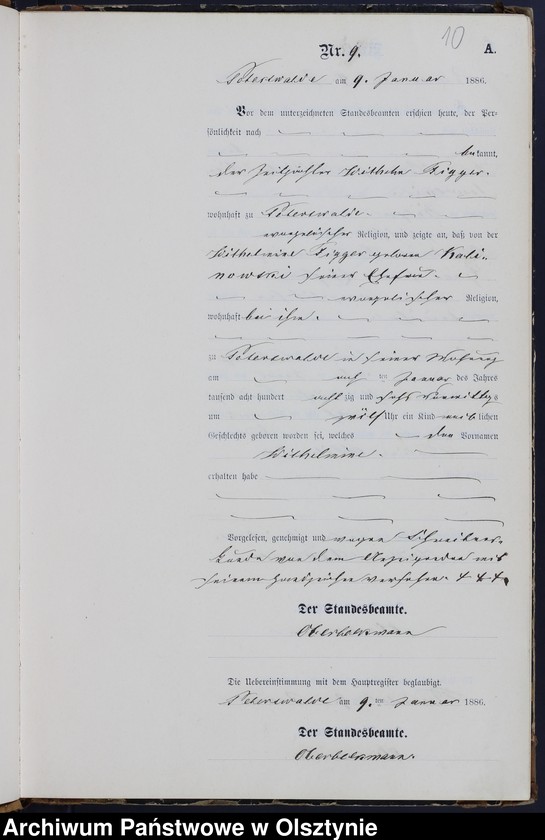 10
Nr. 9. A.
Peterswalde am 9. Januar 1886.
Vor dem unterzeichneten Standesbeamten erschien heute, der Per-
sönlichkeit nach
bekannt,
der Wilhelm Kigger.
wohnhaft zu Peterswalde.
evangelischer Religion, und zeigte an, daß von der
Wilhelmine Kigger geboren Kali-
nowski seiner Ehefrau
evangelischer Religion,
wohnhaft bei ihm.
zu Peterswalde in seiner Wohnung
am acht ten Januar des Jahres
tausend acht hundert acht zig und sechs Vormittags
um zwölf Uhr ein Kind weiblichen
Geschlechts geboren worden sei, welches den Vornamen
Wilhelmine.
erhalten habe
Vorgelesen, genehmigt und wegen Schreibens-
kunde von dem Anzeigenden mit
seinem Handzeichen versehen. + + +
Der Standesbeamte.
Oberbeckmann
Die Uebereinstimmung mit dem Hauptregister beglaubigt.
Peterswalde am 9. ten Januar 1886.
Der Standesbeamte.
Oberbeckmann.
Archiwum Państwowe w Olsztynie